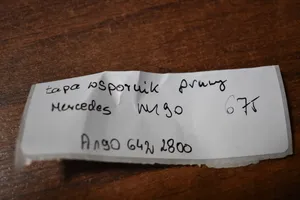 Łapa wspornik prawy
Mercedes W190 675
A190 642 2800